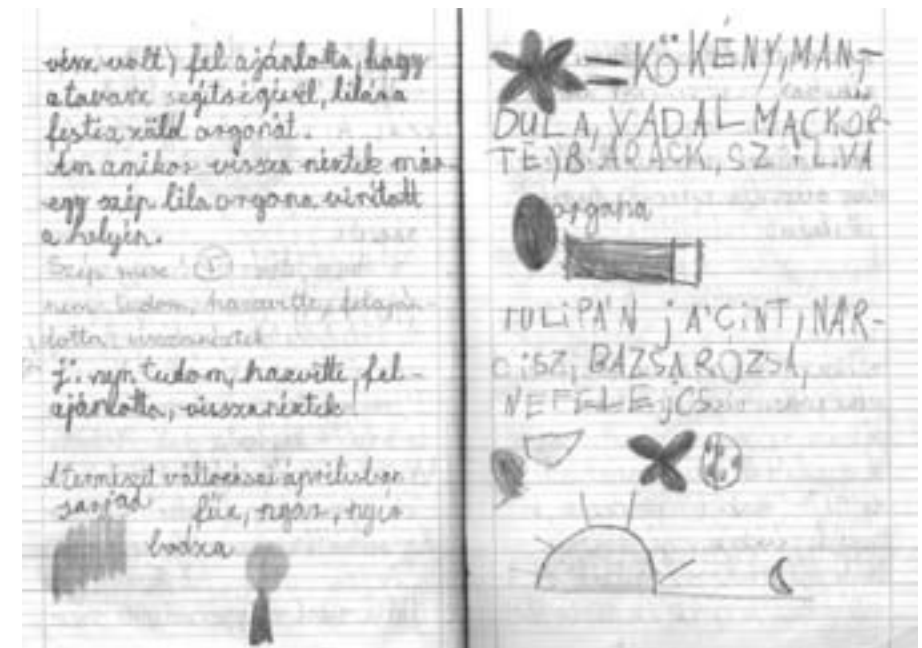 vész volt) fel ajánlotta, hogy
a tavasz segítségével, lilára
festi a zöld orgonát.
Ám amikor vissza néztek már
egy szép lila orgona virított
a helyén.
Szép mese! 5
nem tudom, hazavitte, felaján-
lotta, visszanéztek
j: nem tudom, hazavitte, fel-
ajánlotta, visszanéztek!
A természet változásai áprilisban
sarjad fűz, nyár, nyír
bodza
= KÖKÉNY, MAN-
DULA, VADALMA(KÖR-
TE) BARACK, SZILVA
orgona
TULIPÁN jÁCiNT, NÁR-
CiSZ, BAZSARÓZSA,
NEFELEjCS